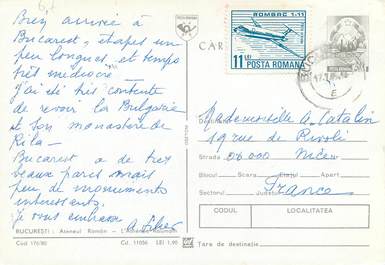 Bien arrivée à
Bucarest, étapes un
peu longues, et temps
très médiocre -
J'ai été très contente
de revoir la Bulgarie
et son monastère de
Rila -
Bucarest a de très
beaux parcs mais
peu de monuments
intéressants.
Je vous embrasse
BUCUREȘTI: Ateneul Român
Cod 176/80 Cd. 11056 LEI 1,90
CAR
ROMBAC 1-11
11 LEI
POSTA ROMANA
Mademoiselle A. Catalin
19 rue de Rivoli
Strada 06.000 Nice
Blocul Scara Etajul Apart.
Sectorul Județul
France
CODUL LOCALITATEA
Țara de destinație